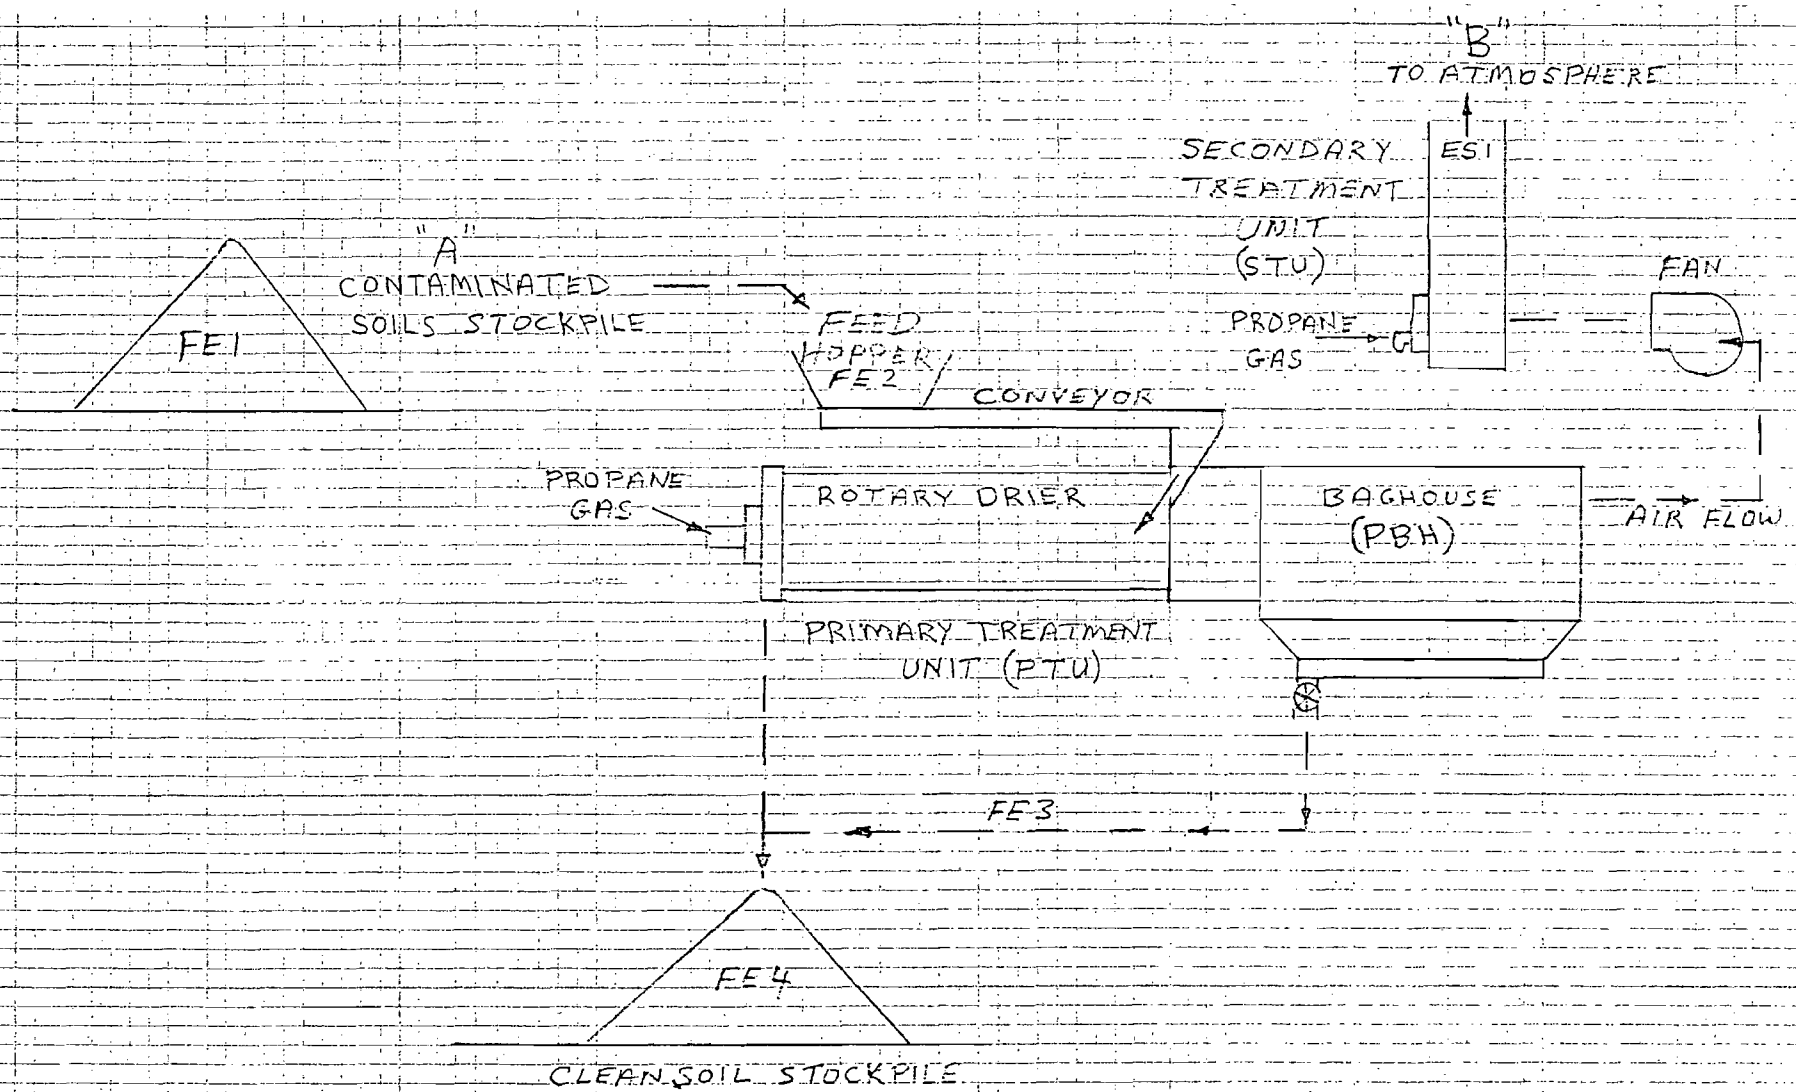 "B"
TO ATMOSPHERE
SECONDARY
TREATMENT
UNIT
(STU)
ES1
"A"
CONTAMINATED
SOILS STOCKPILE
FE1
FEED
HOPPER
FE2
CONVEYOR
PROPANE
GAS
FAN
PROPANE
GAS
ROTARY DRIER
BAGHOUSE
(PBH)
AIR FLOW
PRIMARY TREATMENT
UNIT (PTU)
FE3
FE4
CLEAN SOIL STOCKPILE